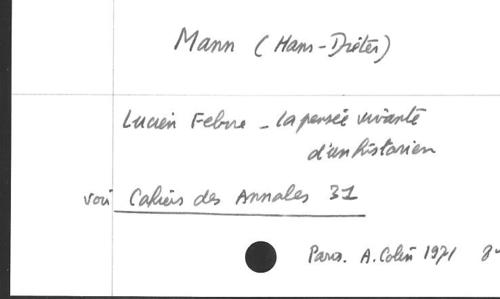 Mann (Hans-Dieter)
Lucien Febvre - la pensée vivante
d'un historien
voir Cahiers des Annales 31
Paris. A. Colin 1971